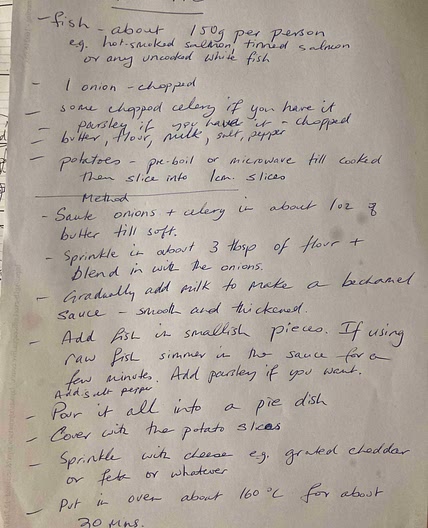 - fish - about 150g per person
e.g. hot-smoked salmon, tinned salmon
or any uncooked white fish
- 1 onion - chopped
- some chopped celery if you have it
- parsley if you have it - chopped
- butter, flour, milk, salt, pepper
- potatoes - pre-boil or microwave till cooked
then slice into 1cm. slices
Method
- Saute onions + celery in about 1oz of
butter till soft.
- Sprinkle in about 3 tbsp of flour +
blend in with the onions.
- Gradually add milk to make a bechamel
sauce - smooth and thickened.
- Add fish in smallish pieces. If using
raw fish simmer in the sauce for a
few minutes. Add parsley if you want.
Add salt pepper
- Pour it all into a pie dish
- Cover with the potato slices
- Sprinkle with cheese e.g. grated cheddar
or feta or whatever
- Put in oven about 160°C for about
30 mns.